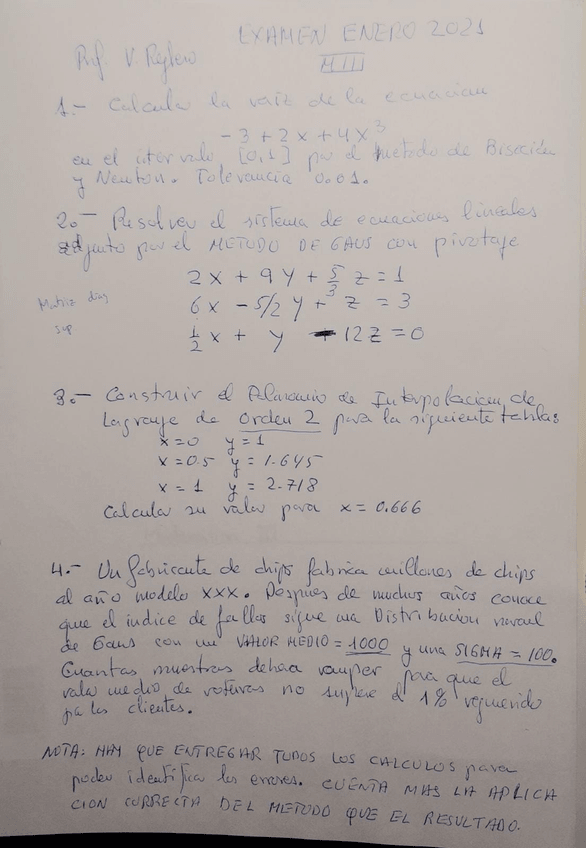 EXAMEN ENERO 2021
Prof V. Reglero
MIII
1.- Calcula la raiz de la ecuacion
-3 + 2x + 4x³
en el intervalo [0,1] por el metodo de Biseccion
y Newton. Tolerancia 0.01.
2.- Resolver el sistema de ecuaciones lineales
adjunto por el METODO DE GAUS con pivotaje
2x + 9y + 5/3 z = 1
6x - 5/2 y + z = 3
Matriz diag
sup
1/2 x + y 12z = 0
3.- Construir el Polinomio de Interpolacion de
Lagrange de orden 2 para la siguiente tablas
x=0 y=1
x=0.5 y=1.645
x=1 y=2.718
Calcular su valor para x = 0.666
4.- Un fabricante de chips fabrica millones de chips
al año modelo XXX. Despues de muchos años conoce
que el indice de fallos sigue una Distribucion normal
de Gaus con un VALOR MEDIO = 1000 y una SIGMA = 100.
Cuantas muestras debera romper para que el
valor medio de roturas no supere el 1% requerido
por los clientes.
NOTA: HAY QUE ENTREGAR TODOS LOS CALCULOS para
poder identificar los errores. CUENTA MAS LA APLICA
CION CORRECTA DEL METODO QUE EL RESULTADO.